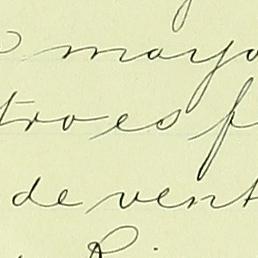 mayo
troes f
de vent